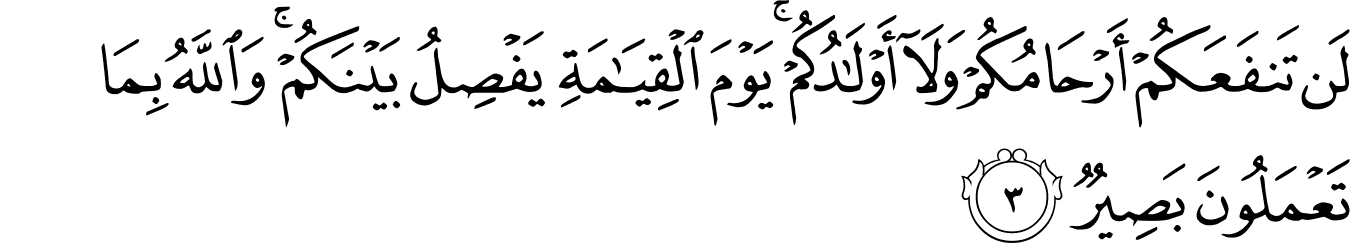 لَن تَنفَعَكُمْ أَرْحَامُكُمْ وَلَآ أَوْلَٰدُكُمْ ۚ يَوْمَ ٱلْقِيَٰمَةِ يَفْصِلُ بَيْنَكُمْ ۚ وَٱللَّهُ بِمَا
تَعْمَلُونَ بَصِيرٌ ٣